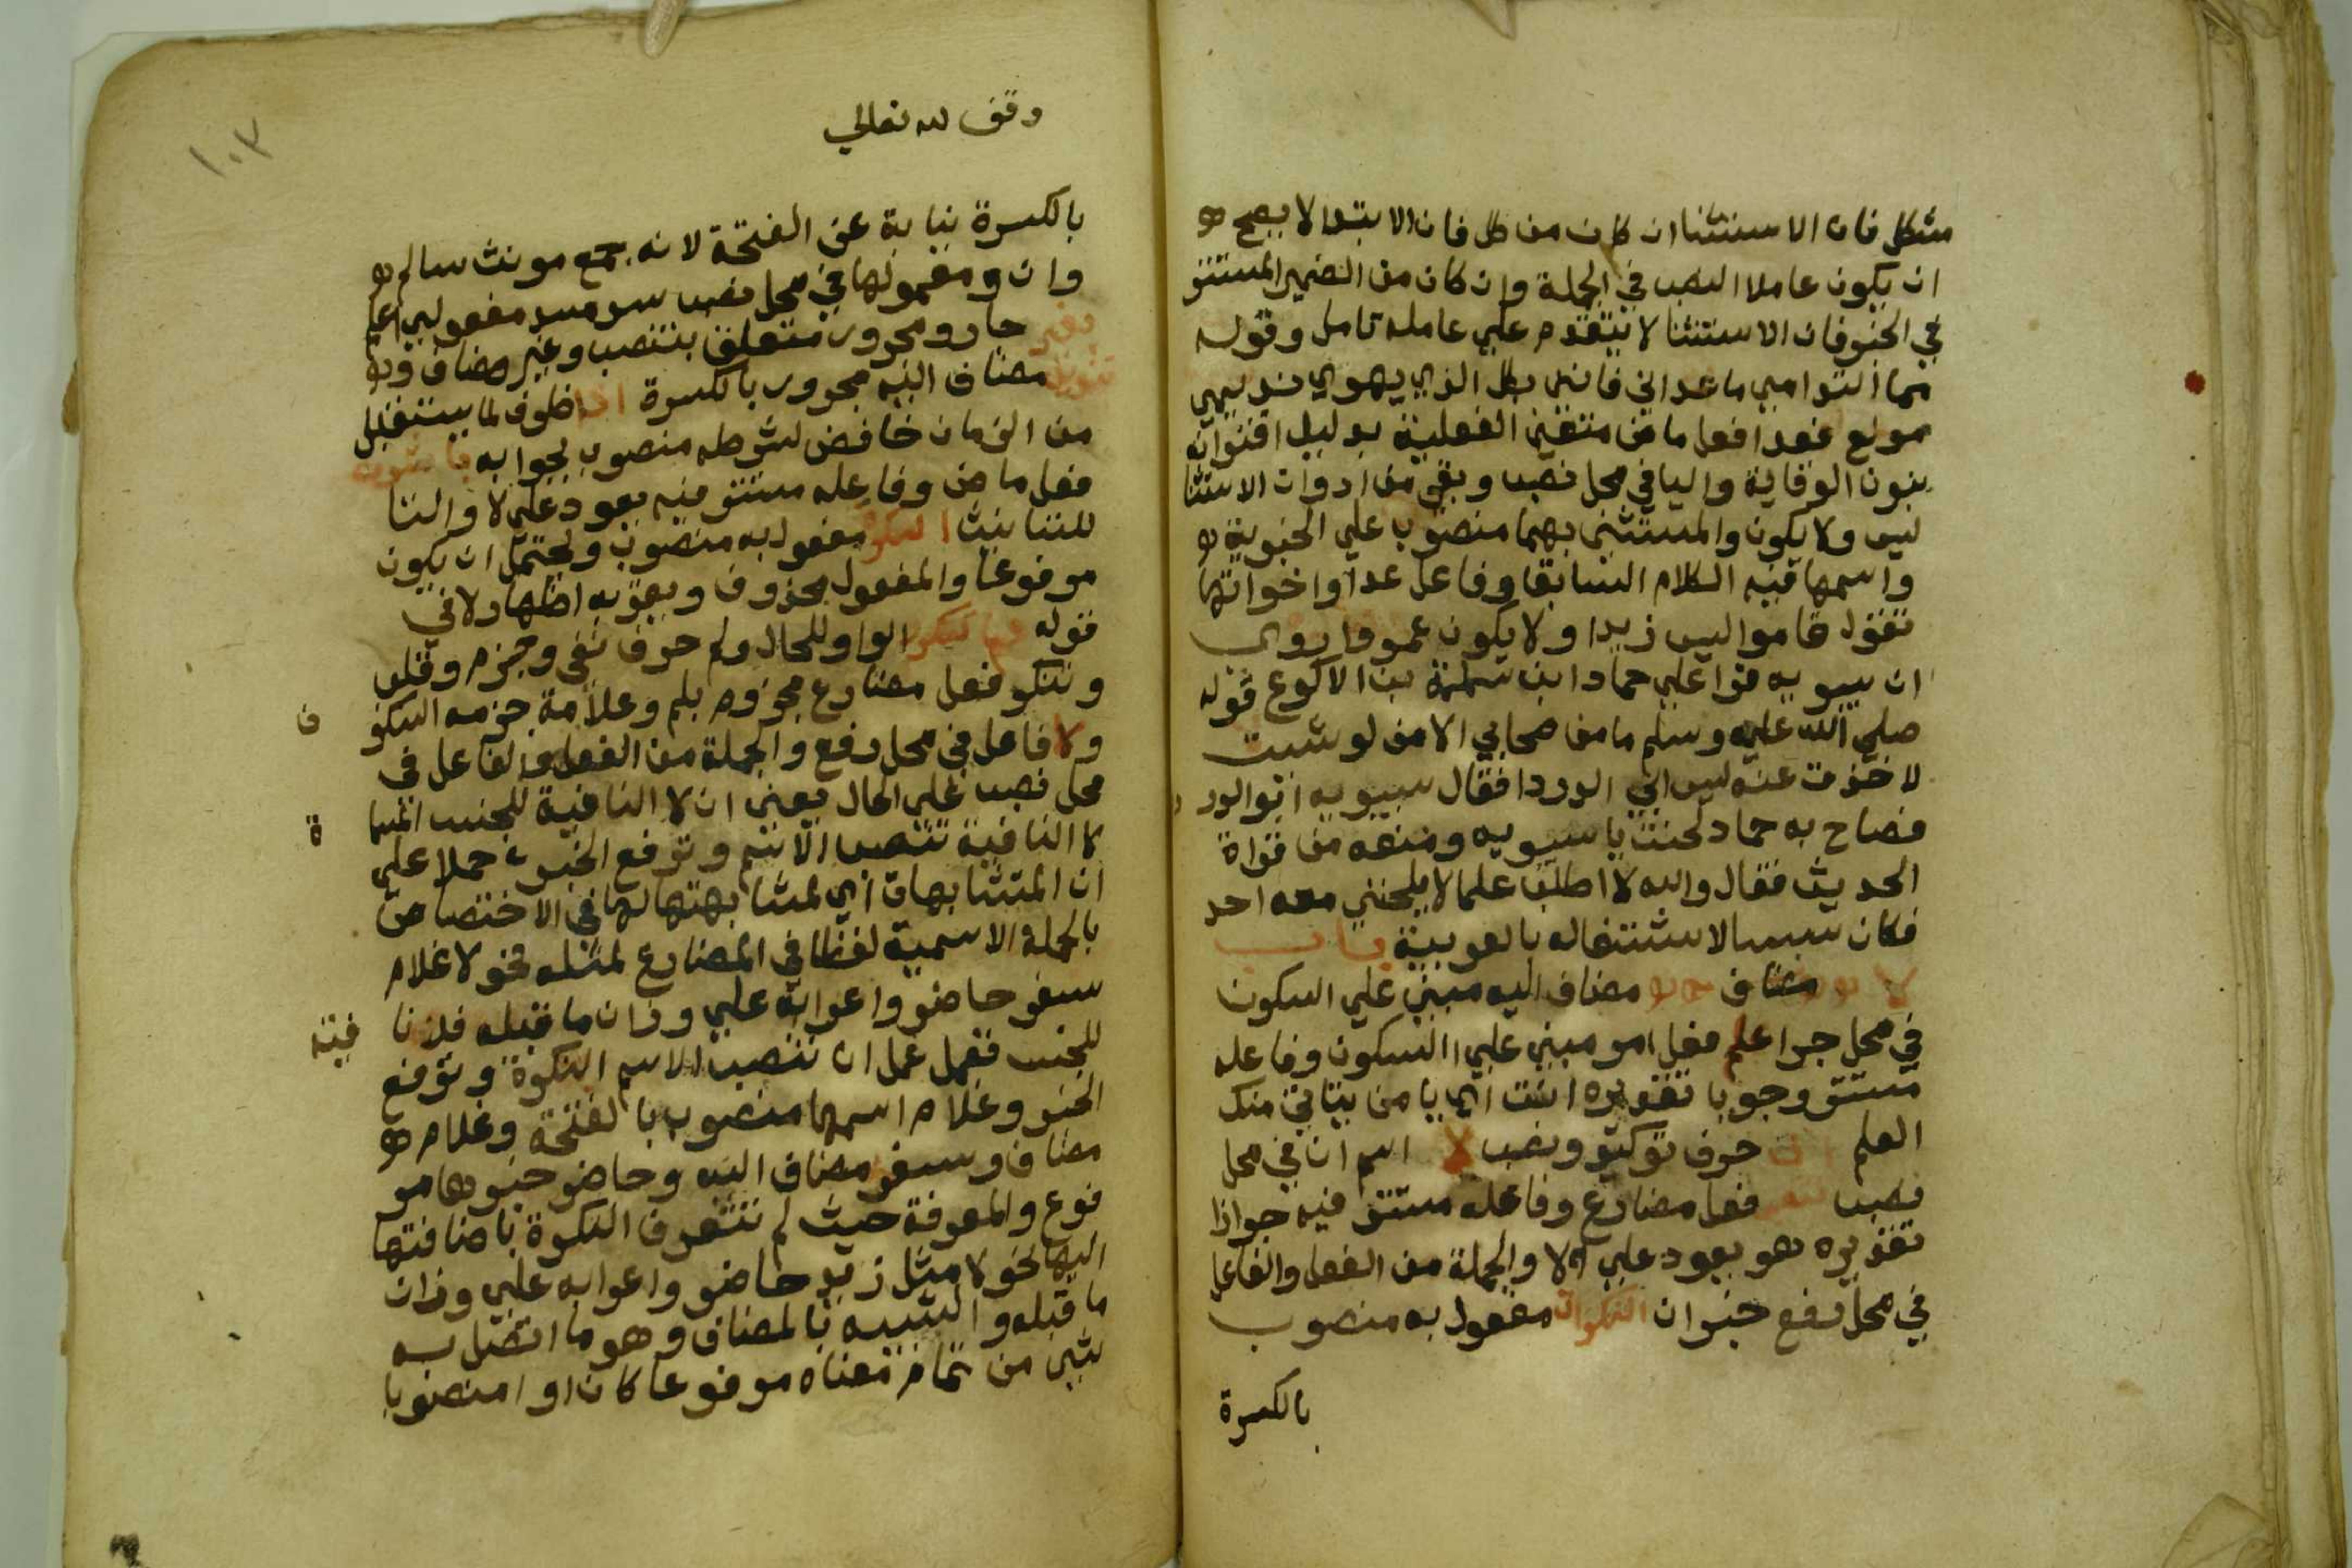 مشكل فان الاستثنا ان كان من كل فان الابتدا لا يصح
ان يكون عاملا النصب في الجملة وان كان من الضمير المستتر
في الخبر فان الاستثنا لا يتقدم علي عامله تامل وقوله
مما الندامي ما عداني فانني بكل الذي يهوي نديمي
مولع فعدا فعل ماض متعين الفعلية بدليل اقترانه
بنون الوقاية واليا في محل نصب وبقي من ادوات الاستثنا
ليس ولا يكون والمستثني بهما منصوب علي الخبرية
واسمها فيه الكلام السابق وفاعل عدا واخواتها
تقول قاموا ليس زيدا ولا يكون عمرو روي
ان سيبويه قرا علي حماد ابن سلمة بن الاكوع قوله
صلي الله عليه وسلم ما من صحابي الا من لو شيت
لاخذت عنه ليس ابي الدردا فقال سيبويه ابو الدرد
فصاح به حماد لحنت يا سيبويه ومنعه من قراة
الحديث فقال والله لا اطلب علما لا يلحنني معه احد
فكان سببا لاشتغاله بالعربية باب
لا مضاف مضاف اليه مبني علي السكون
في محل جر اعلم فعل امر مبني علي السكون وفاعله
مستتر وجوبا تقديره انت اي يا من يتاتي منك
العلم ان حرف توكيد ونصب لا اسم ان في محل
نصب تنصب فعل مضارع وفاعله مستتر فيه جوازا
تقديره هو يعود علي لا والجملة من الفعل والفاعل
في محل رفع خبر ان النكرات مفعول به منصوب
بالكسرة
وقف لله تعالي
١٠٣
بالكسرة نيابة عن الفتحة لانه جمع مونث سالم
وان ومعمولها في محل نصب سد مسد مفعولي اعلم
بغير جار ومجرور متعلق بتنصب وغير مضاف و
تنوين مضاف اليه مجرور بالكسرة اذا ظرف لما يستقبل
من الزمان خافض لشرطه منصوب بجوابه باشرت
فعل ماض وفاعله مستتر فيه يعود علي لا والتا
للتانيث النكرة مفعول به منصوب ويحتمل ان يكون
مرفوعا والمفعول محذوف ويقربه اظهار لا في
قوله ولم تتكرر الواو للحال ولم حرف نفي وجزم وقلب
وتتكرر فعل مضارع مجزوم بلم وعلامة جزمه السكو
ن
ولا فاعل في محل رفع والجملة من الفعل والفاعل في
محل نصب علي الحال يعني ان لا النافية للجنس المسما
ة
لا النافية تنصب الاسم وترفع الخبر حملا علي
ان المتشابهات اي لمشابهتها لها في الاختصاص
بالجملة الاسمية لفظا في المضارع لمثله نحو لا غلام
سفر حاضر واعرابه علي وزان ما قبله فلا نا
فية
للجنس تعمل عمل ان تنصب الاسم النكرة وترفع
الخبر وغلام اسمها منصوب بالفتحة وغلام
مضاف وسفر مضاف اليه وحاضر خبرها مر
فوع والمعرفة حيث لم تتعرف النكرة باضافتها
اليها نحو لا مثل زيد حاضر واعرابه علي وزان
ما قبله والشبيه بالمضاف وهو ما اتصل به
شي من تمام معناه مرفوعا كان او منصوبا